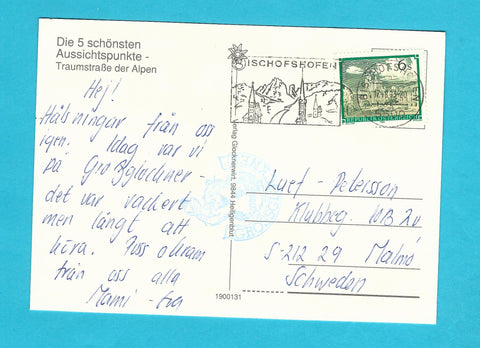 Die 5 schönsten
Aussichtspunkte -
Traumstraße der Alpen
Hej!
Hälsningar från oss
igen. Idag var vi
på Großglockner -
det var vackert
men långt att
köra. Puss o kram
från oss alla
Mami -
BISCHOFSHOFEN
6
REPUBLIK ÖSTERREICH
Verlag Glocknerwirt, 9844 Heiligenblut
- Petersson
Klubbeg. 10B 2v
S-212 29 Malmö
Schweden
1900131